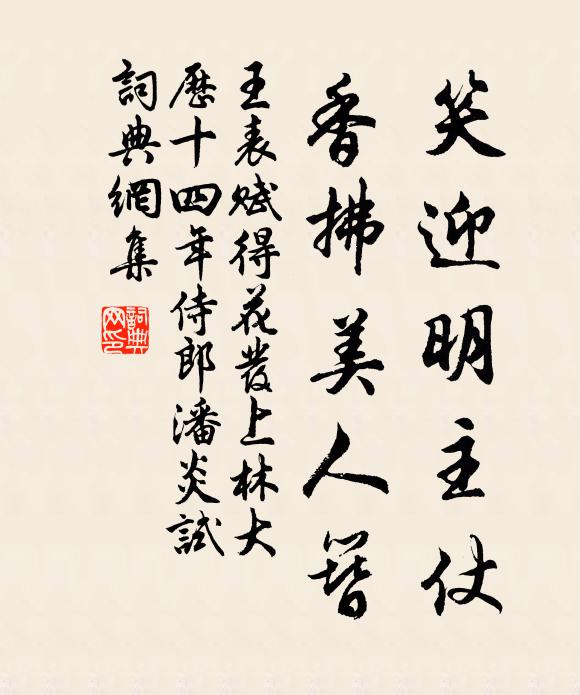 笑迎明主仗
香拂美人簪
王表賦得花發上林大
歷十四年侍郎潘炎試
詞典網集
詞典网印